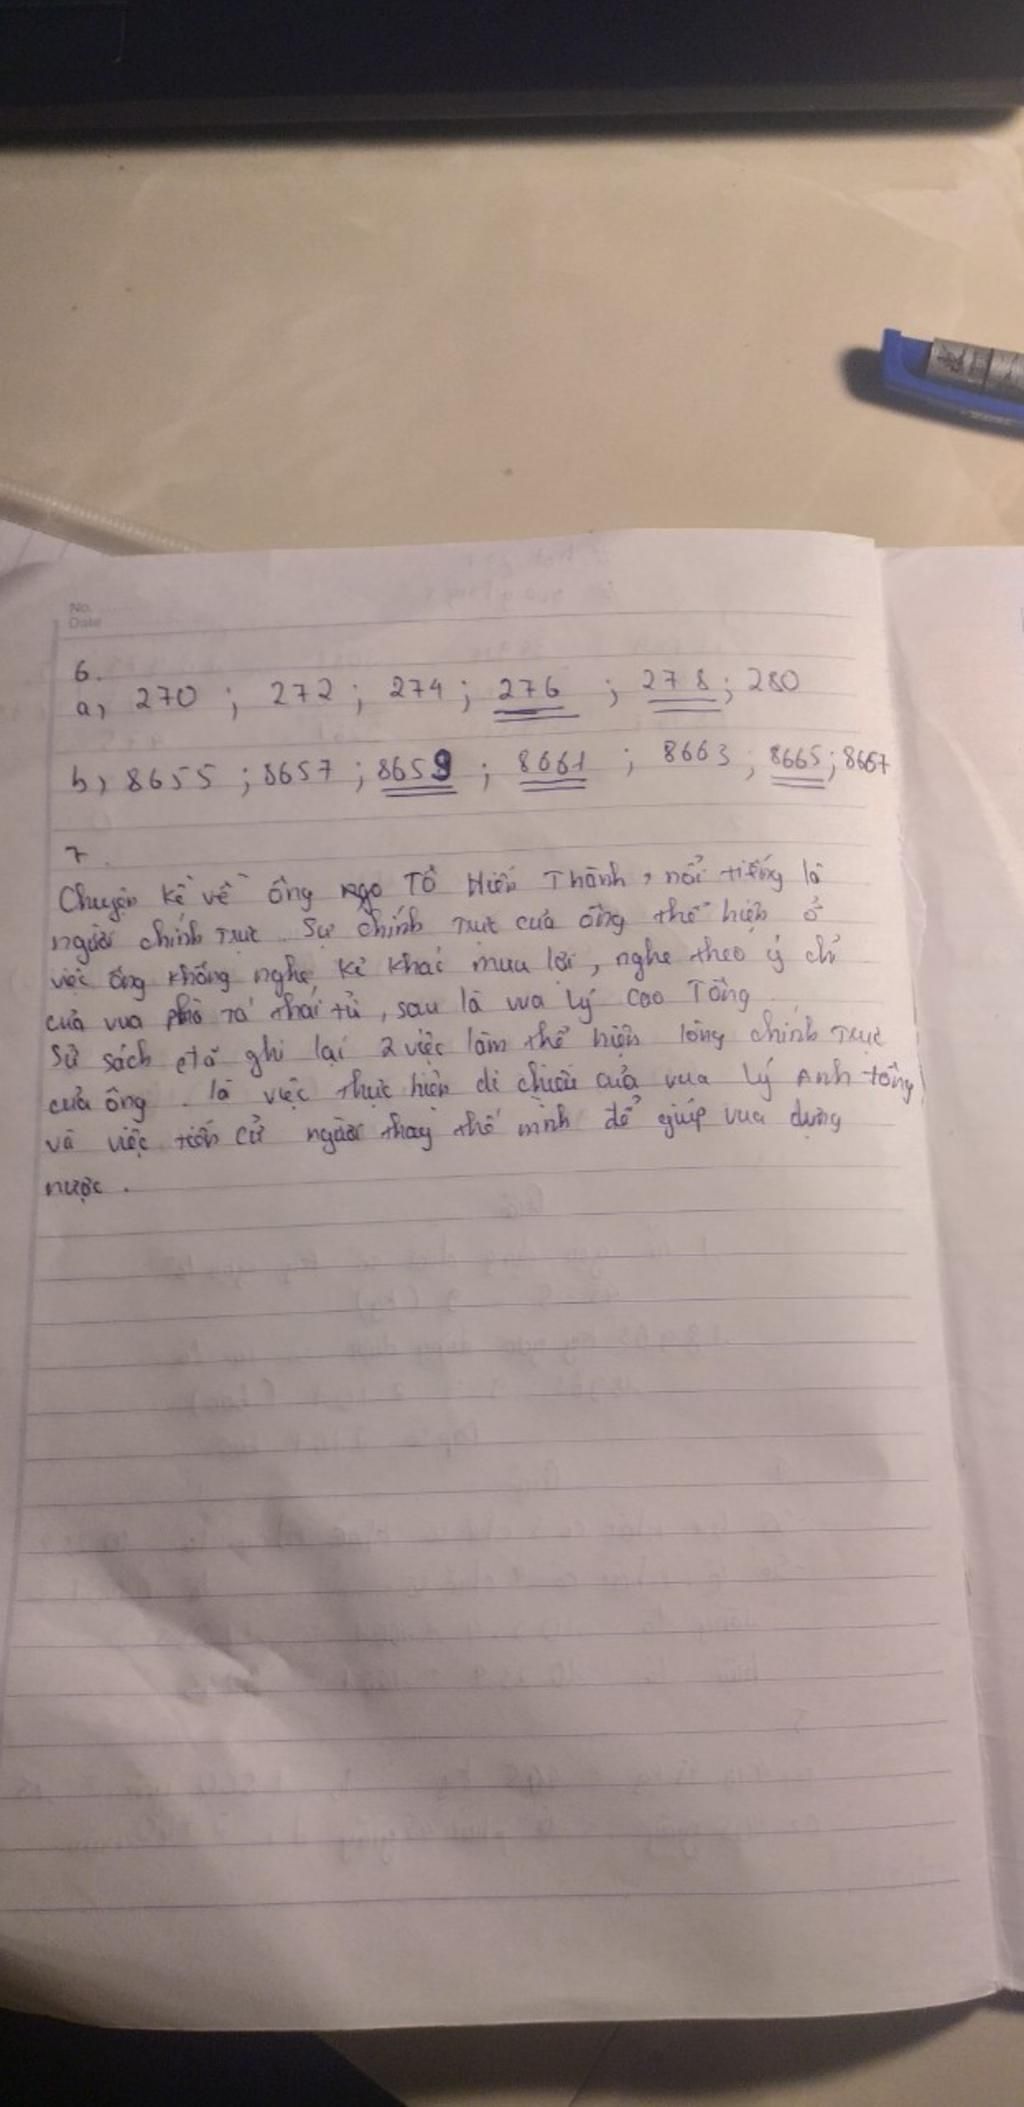 No.
Date
6.
a, 270 ; 272 ; 274 ; 276 ; 278 ; 280
b, 8655 ; 8657 ; 8659 ; 8661 ; 8663 ; 8665 ; 8667
7.
Chuyện kể về ông Tô Hiến Thành, nổi tiếng là
người chính trực. Sự chính trực của ông thể hiện ở
việc ông không nghe kẻ khác mua lời, nghe theo ý chỉ
của vua phò tá thái tử, sau là vua Lý Cao Tông
Sử sách đã ghi lại 2 việc làm thể hiện lòng chính trực
của ông. là việc thực hiện di chiếu của vua Lý Anh tông
và việc tiến cử người thay thế mình để giúp vua dựng
nước.